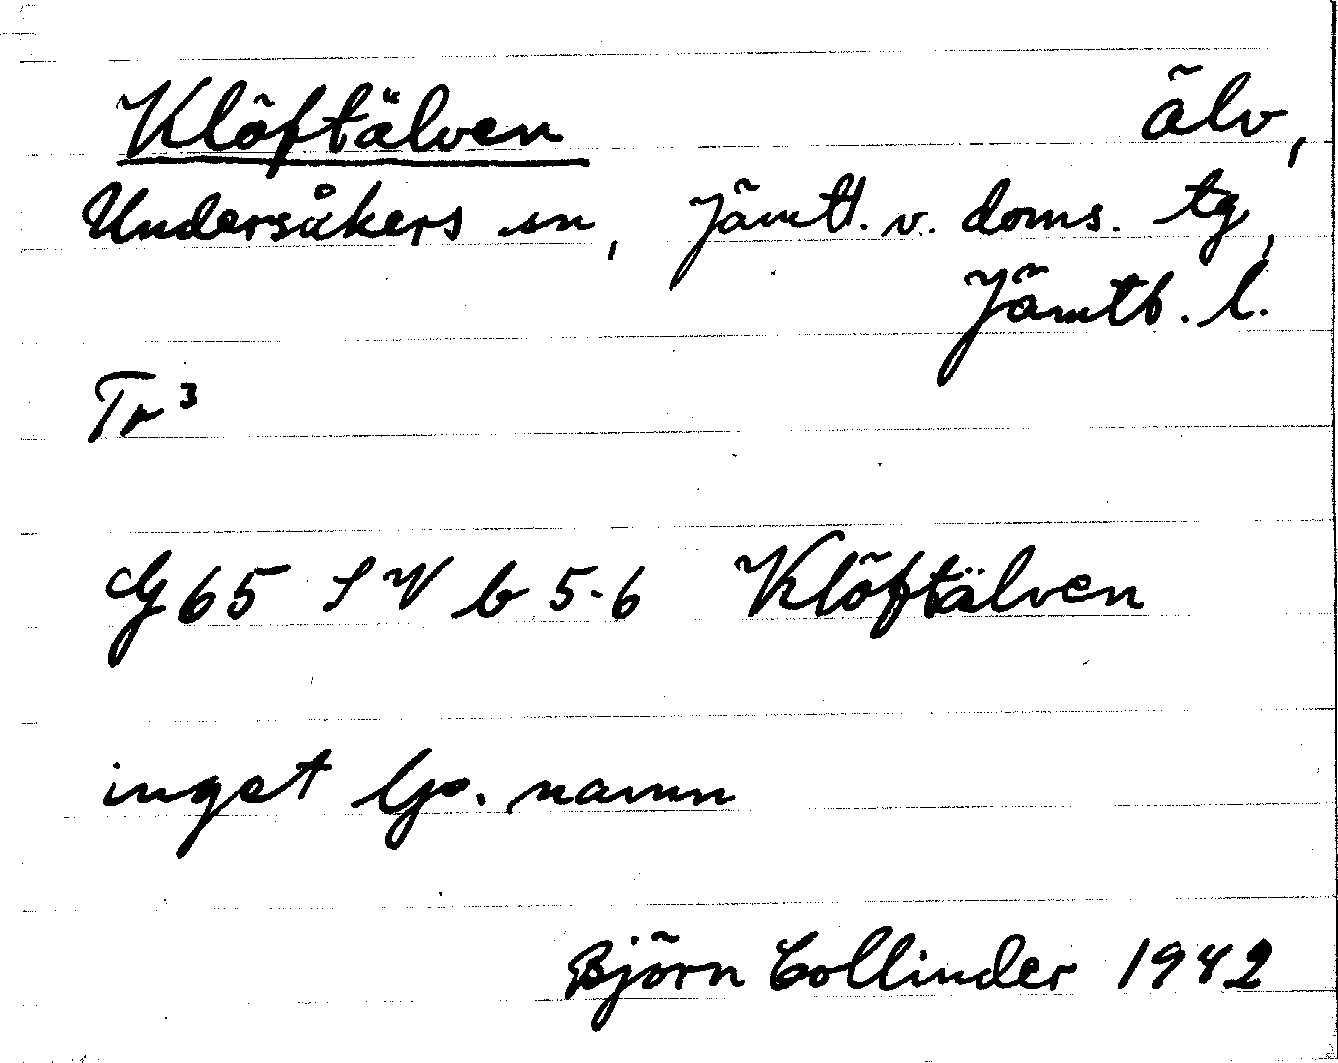 Klöftälven älv,
Undersåkers sn, Jämtl. v. doms. tg,
Jämtl. l.
Tr³
G 65 SV b 5-6 Klöftälven
inget lp. namn
Björn Collinder 1942